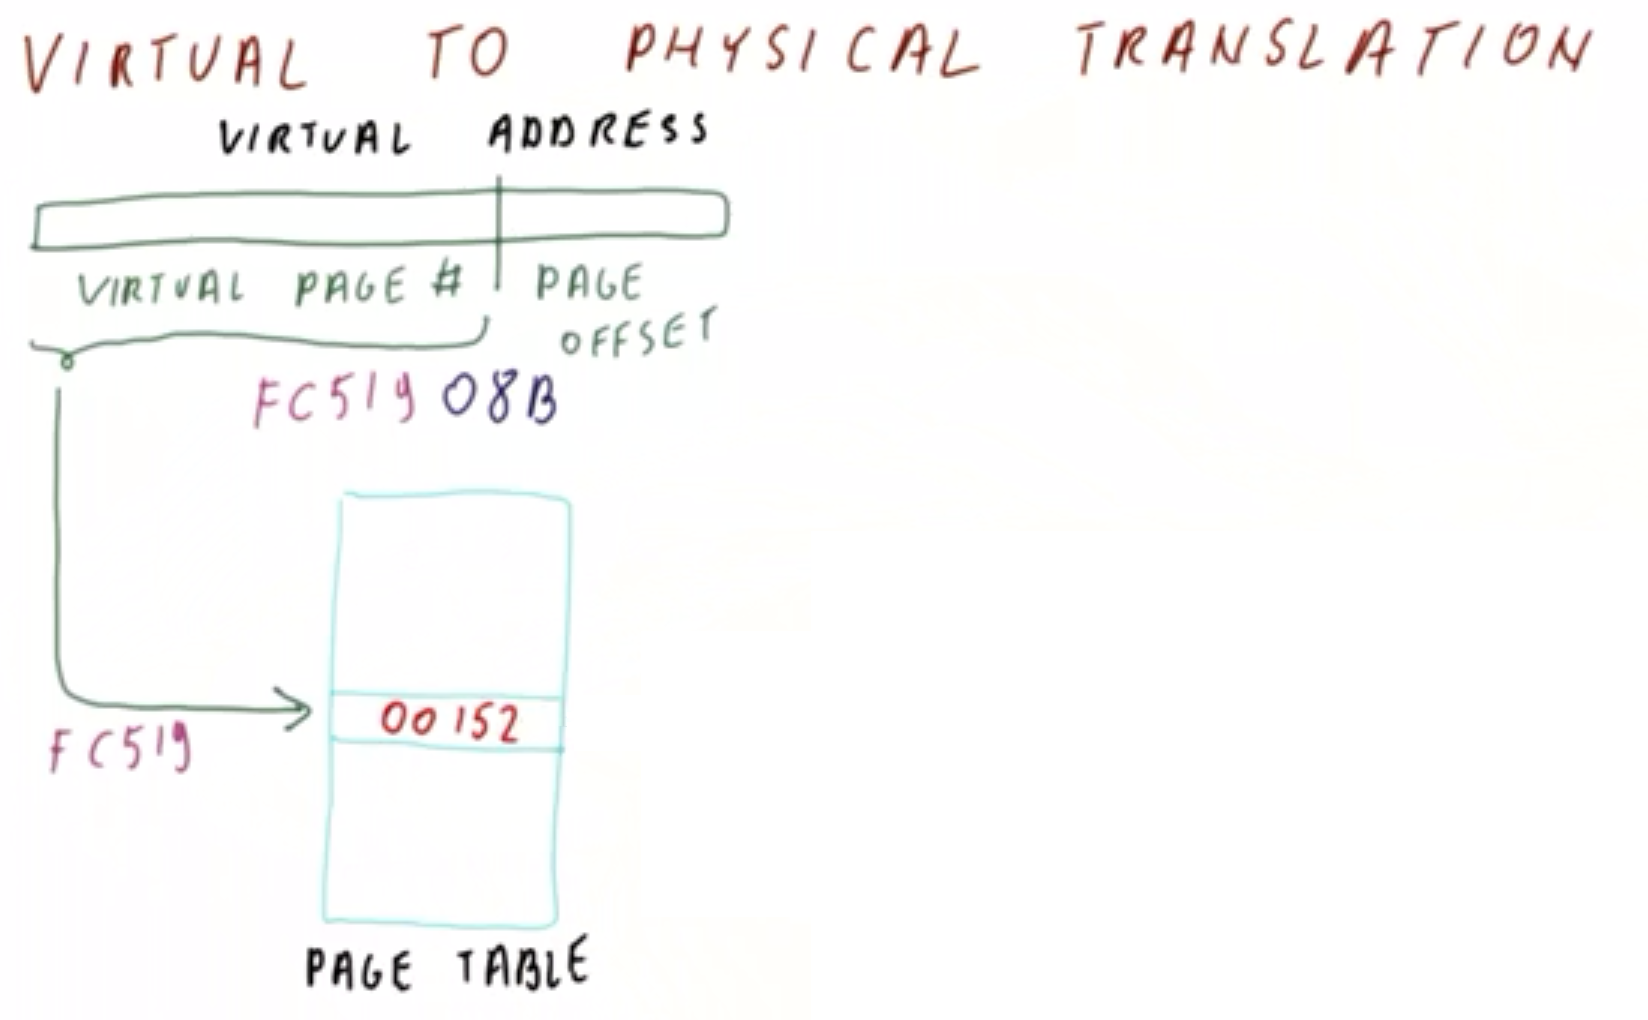 VIRTUAL TO PHYSICAL TRANSLATION
VIRTUAL ADDRESS
VIRTUAL PAGE # PAGE
OFFSET
FC519 08B
00152
FC519
PAGE TABLE